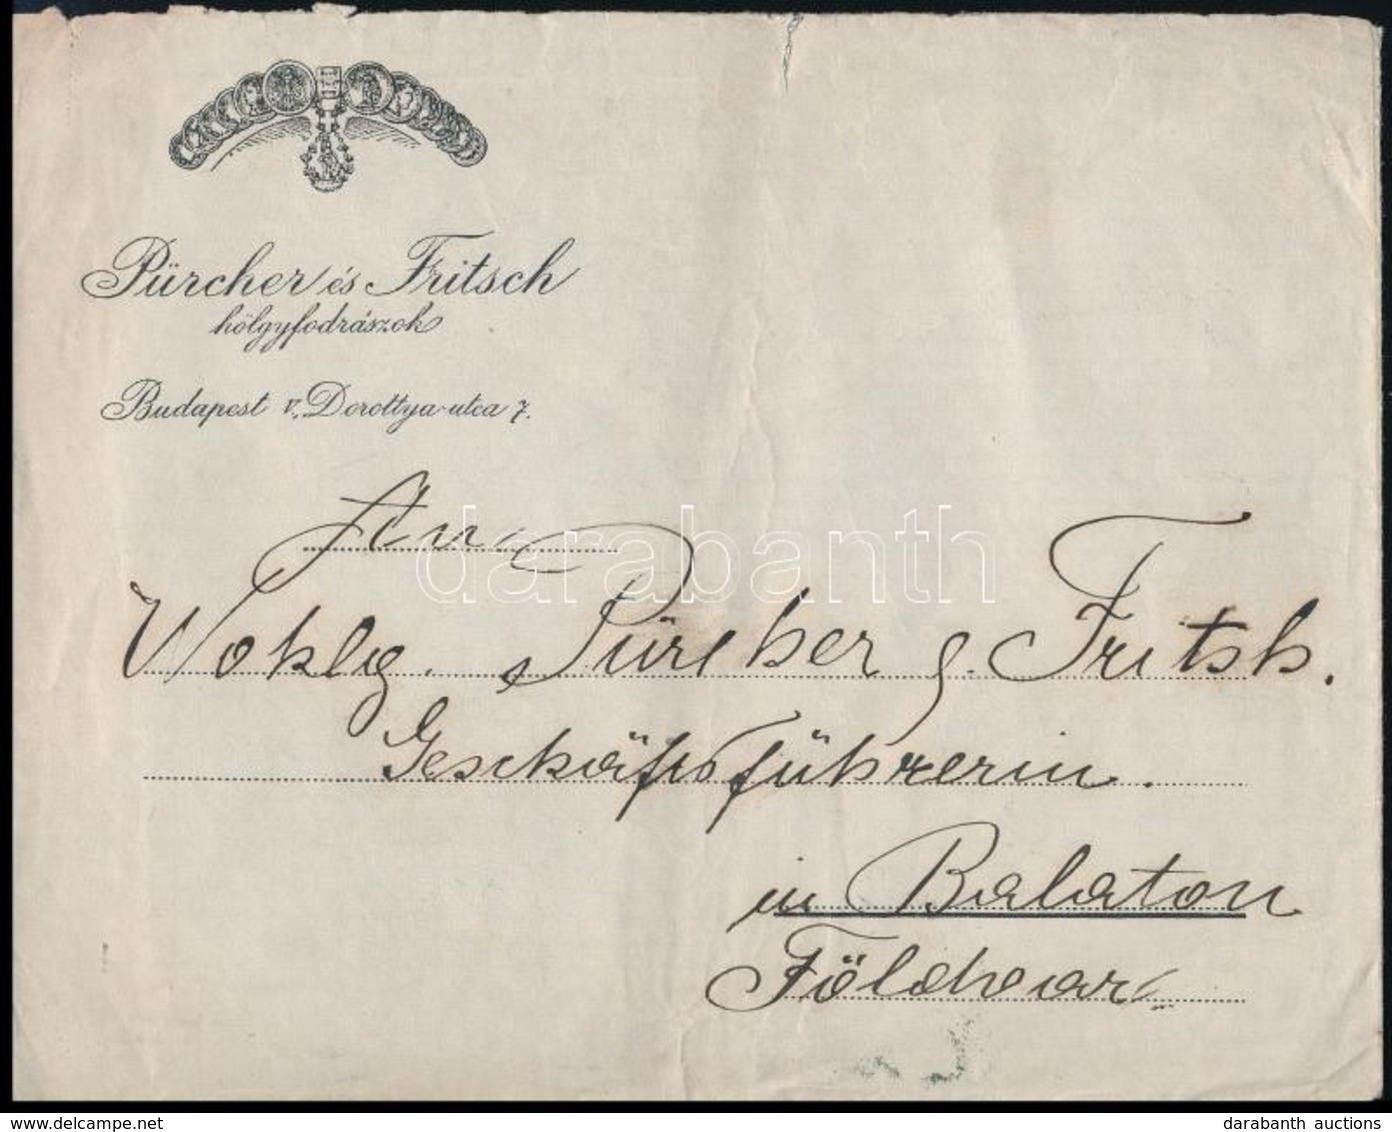 Pürcher és Fritsch
hölgyfodrászok
Budapest V. Dorottya-utca 7.
An
Wohlg. Pürcher & Fritsh.
Geschäftsführerin.
in Balaton
Földvar
darabanth
darabanth auctions